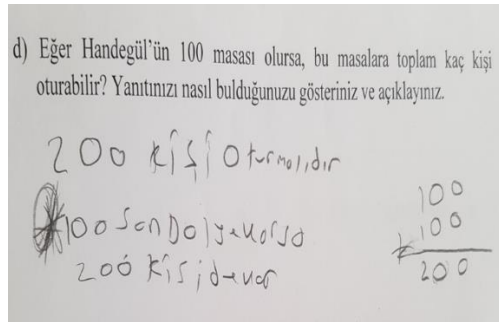 d) Eğer Handegül'ün 100 masası olursa, bu masalara toplam kaç kişi
oturabilir? Yanıtınızı nasıl bulduğunuzu gösteriniz ve açıklayınız.
200 kişi oturmalıdır
100 sandalye varsa
200 kişi de var
100
100
+
200